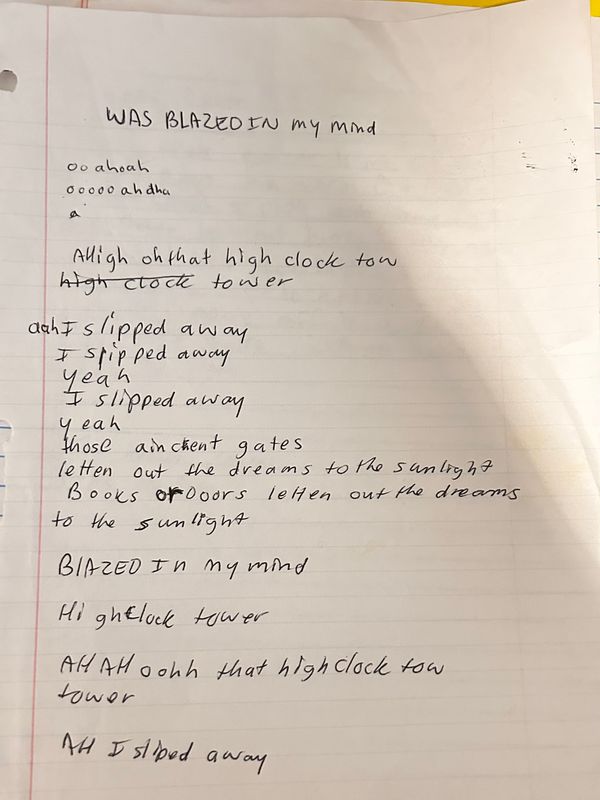 WAS BLAZED IN my mind
oo ahoah
ooooo ahdha
a
AHigh oh that high clock tow
high clock tower
aah I slipped away
I spipped away
yeah
I slipped away
yeah
those ainctent gates
letten out the dreams to the sunlright
Books or Doors letten out the dreams
to the sunlright
BlAZED In my mind
High Clock tower
AH AH oohh that high clock tow
tower
AH I slibed away